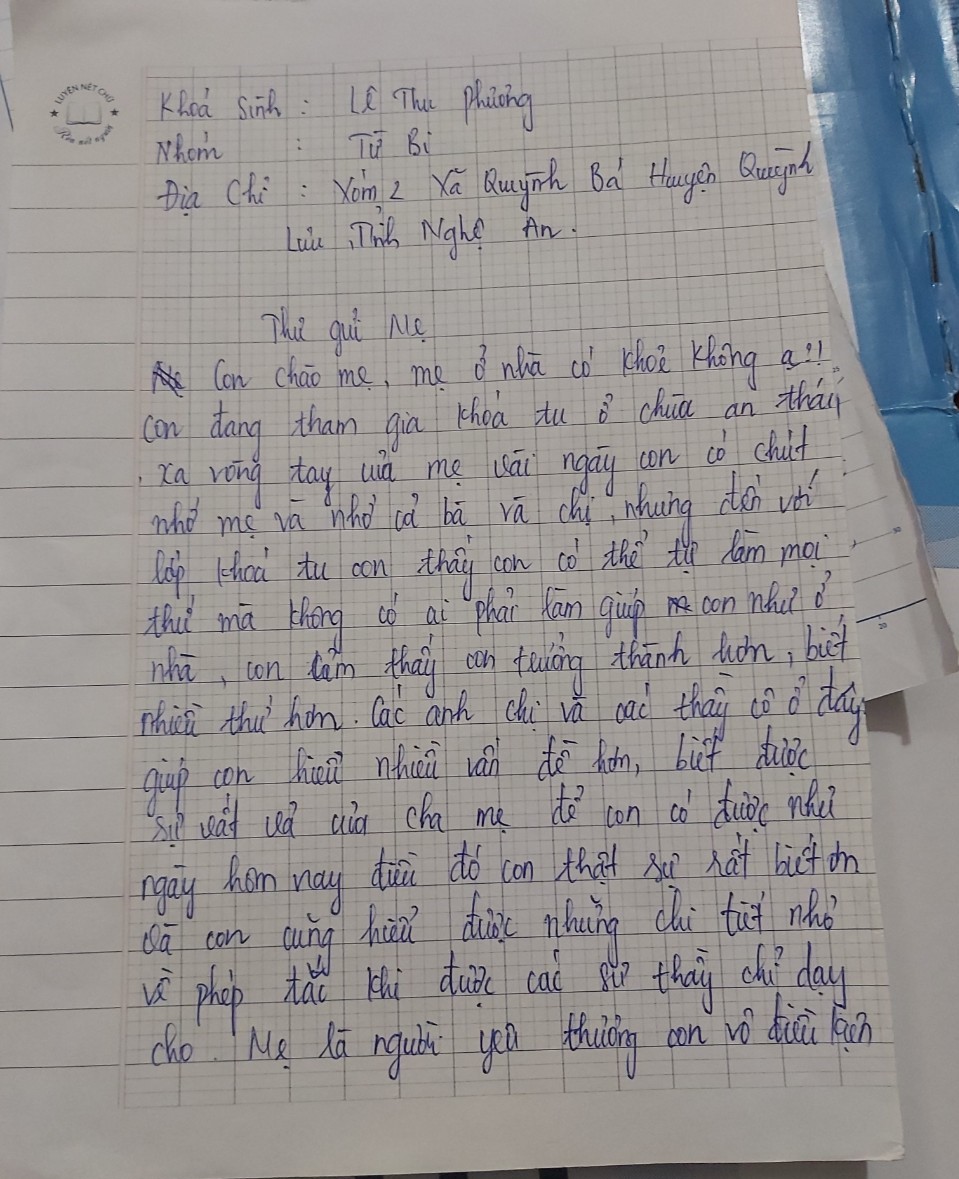 LUYỆN NÉT CHỮ
Rèn nết người
Khoá Sinh : Lê Thu Phương
Nhóm : Từ Bi
Địa Chỉ : Xóm 2 Xã Quỳnh Bá Huyện Quỳnh
Lưu, Tỉnh Nghệ An.
Thư gửi Mẹ
Con chào mẹ, mẹ ở nhà có khoẻ không ạ?!
con đang tham gia khoá tu ở chùa an thái
, xa vòng tay của mẹ vài ngày con có chút
nhớ mẹ và nhớ cả bà và chị, nhưng đến với
lớp khoá tu con thấy con có thể tự làm mọi
thứ mà không có ai phải làm giúp con như ở
nhà, con cảm thấy con trưởng thành hơn, biết
nhiều thứ hơn. Các anh chị và các thầy cô ở đây
giúp con hiểu nhiều vấn đề hơn, biết được
sự vất vả của cha mẹ để con có được như
ngày hôm nay điều đó con thật sự rất biết ơn
và con cũng hiểu được những chi tiết nhỏ
về phép tắc khi được các sư thầy chỉ dạy
cho. Mẹ là người yêu thương con vô điều kiện